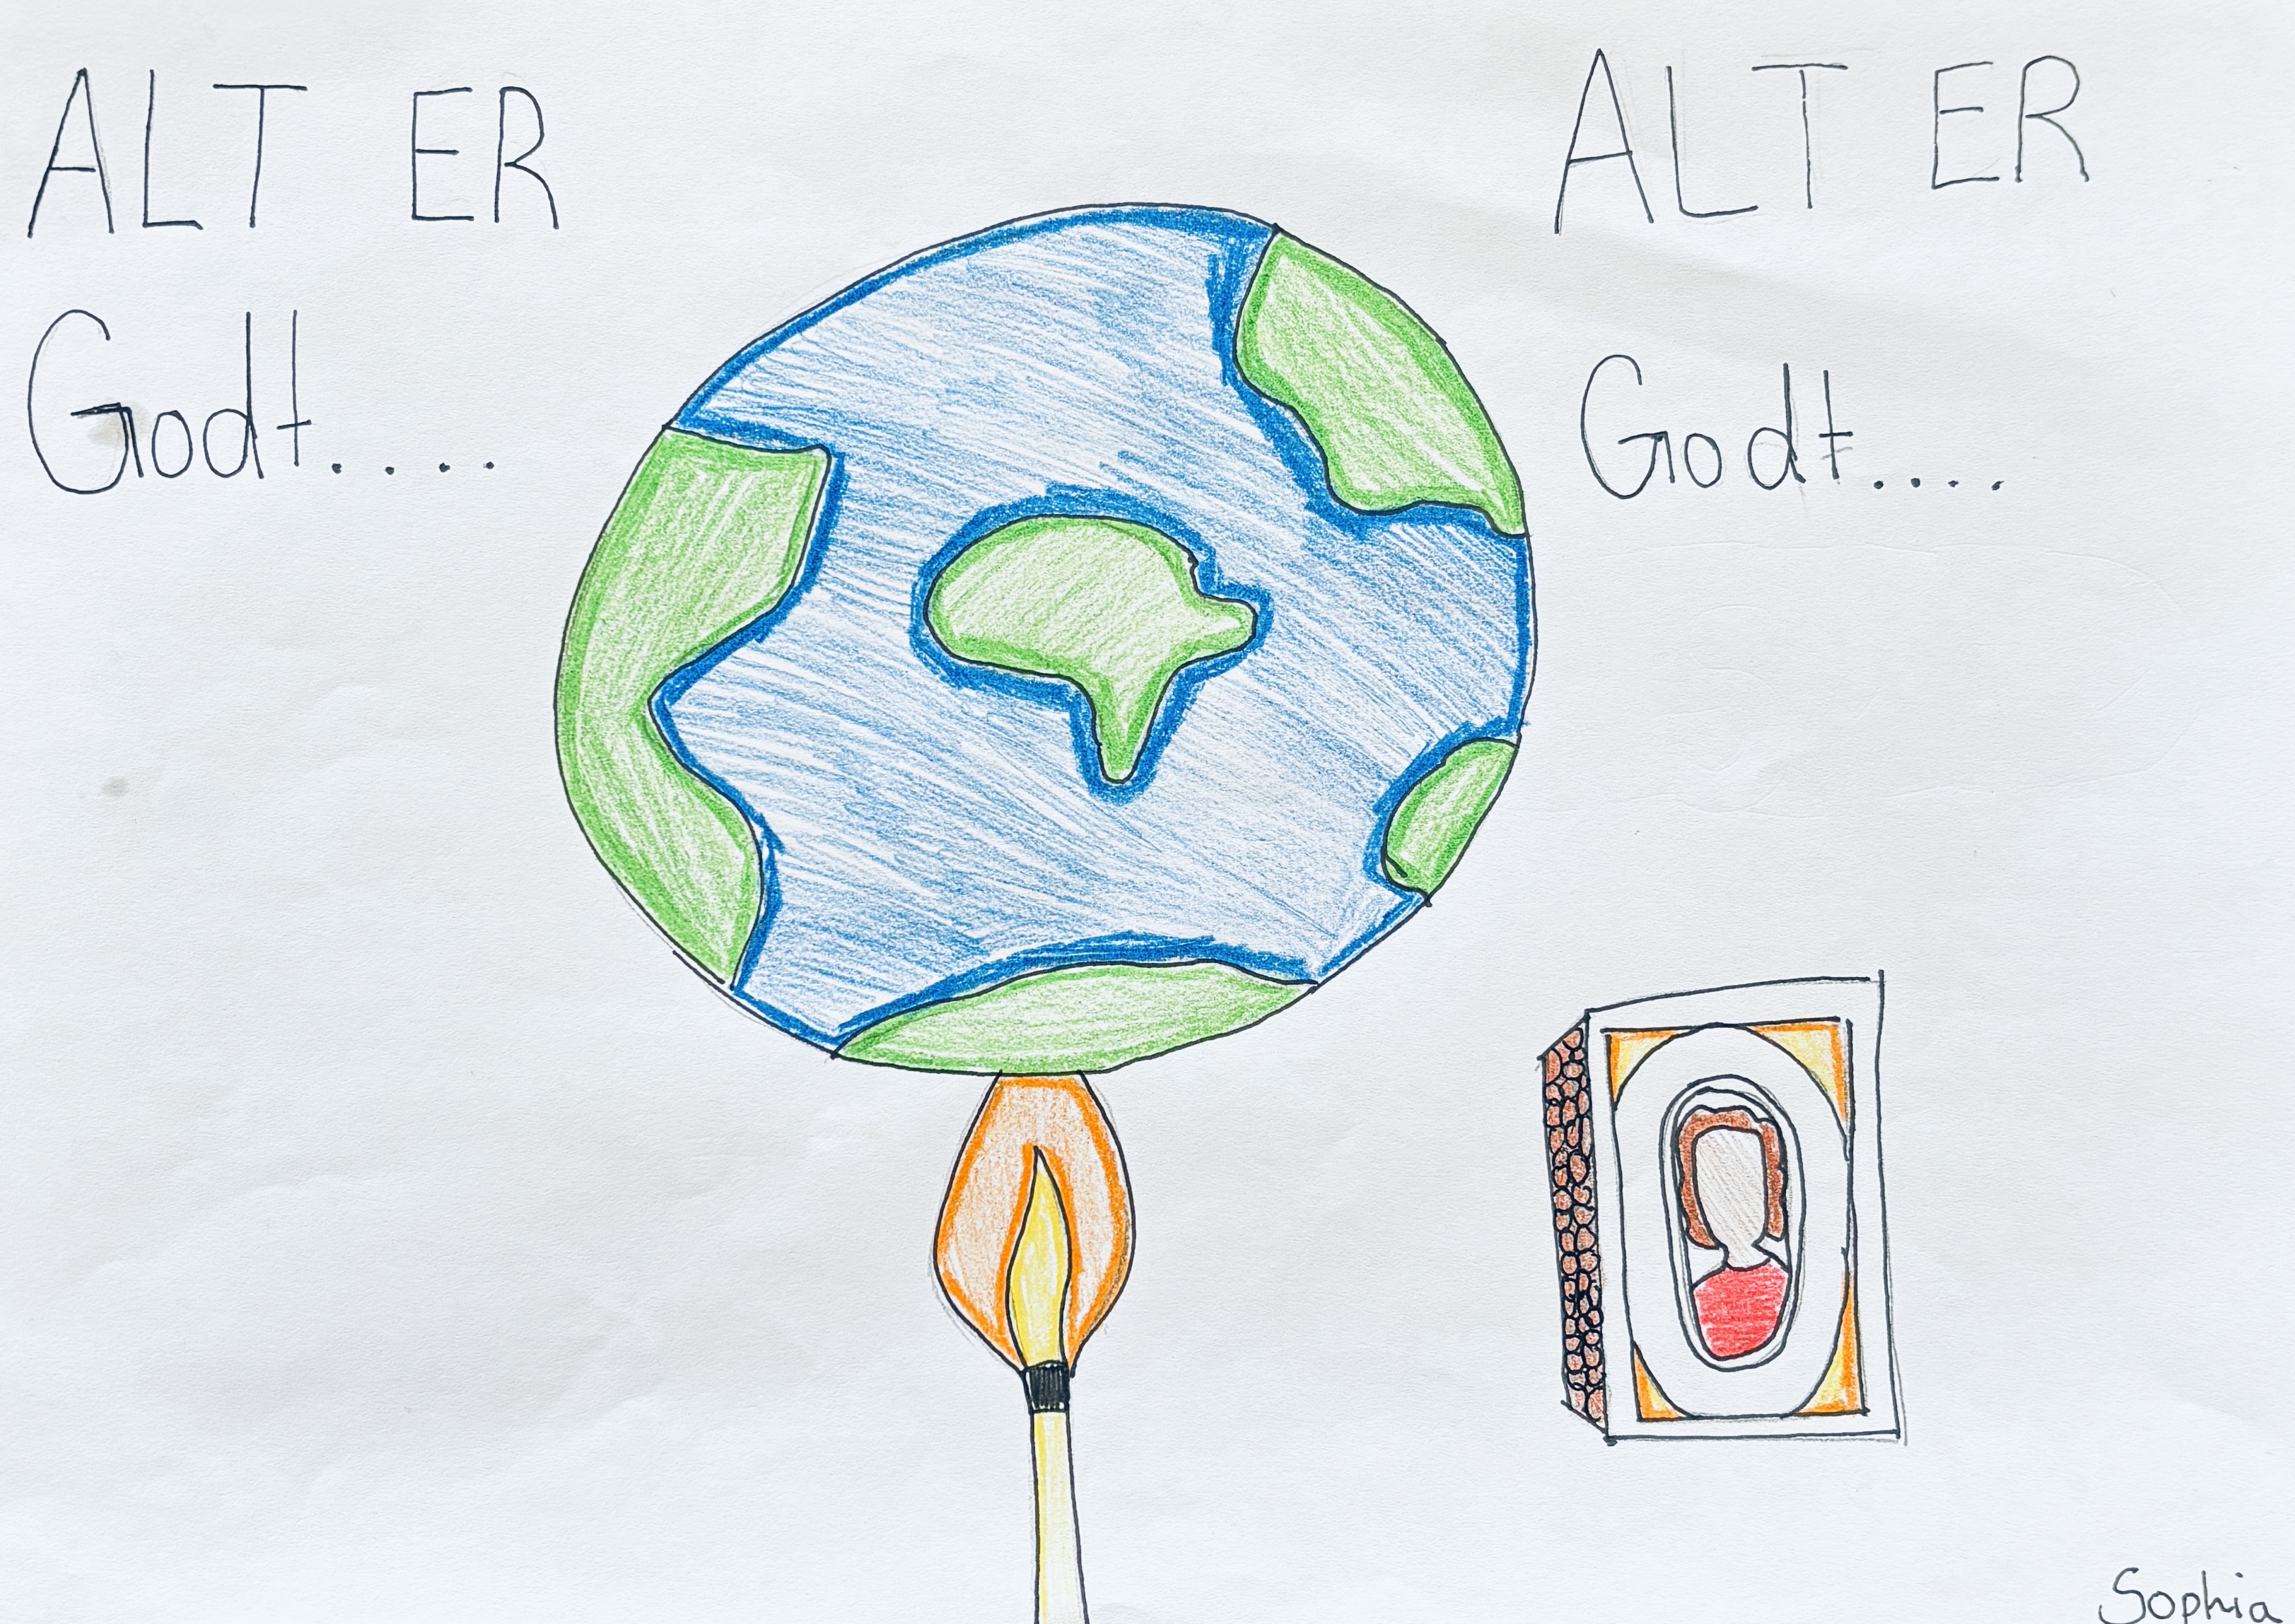 ALT ER
Godt....
ALT ER
Godt....
Sophia